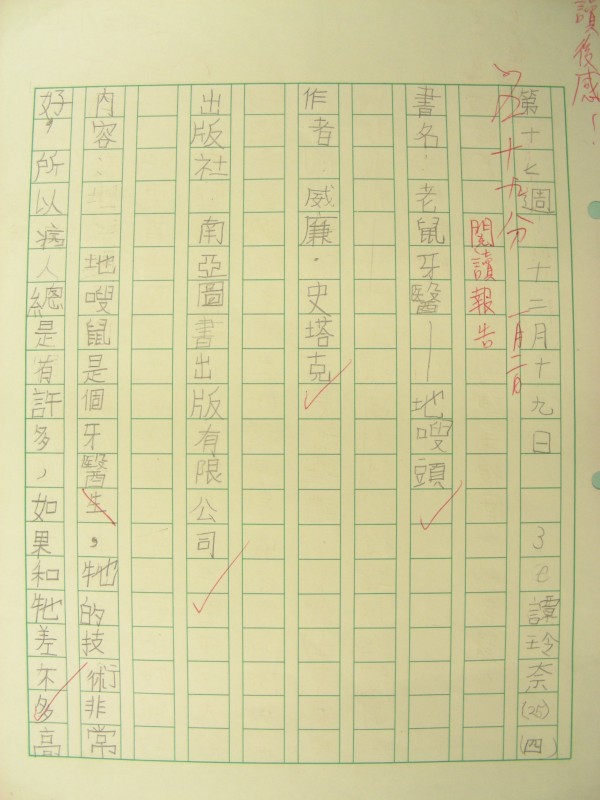 讀後感！
第十七週 十二月十九日 3e 譚玲奈(25)(四)
十九分 一月二日
閱讀報告
書名：老鼠牙醫－地嗖頭
作者：威廉·史塔克
出版社：南亞圖書出版有限公司
內容：地嗖鼠是個牙醫生，牠的技術非常
好，所以病人總是有許多，如果和牠差不多高